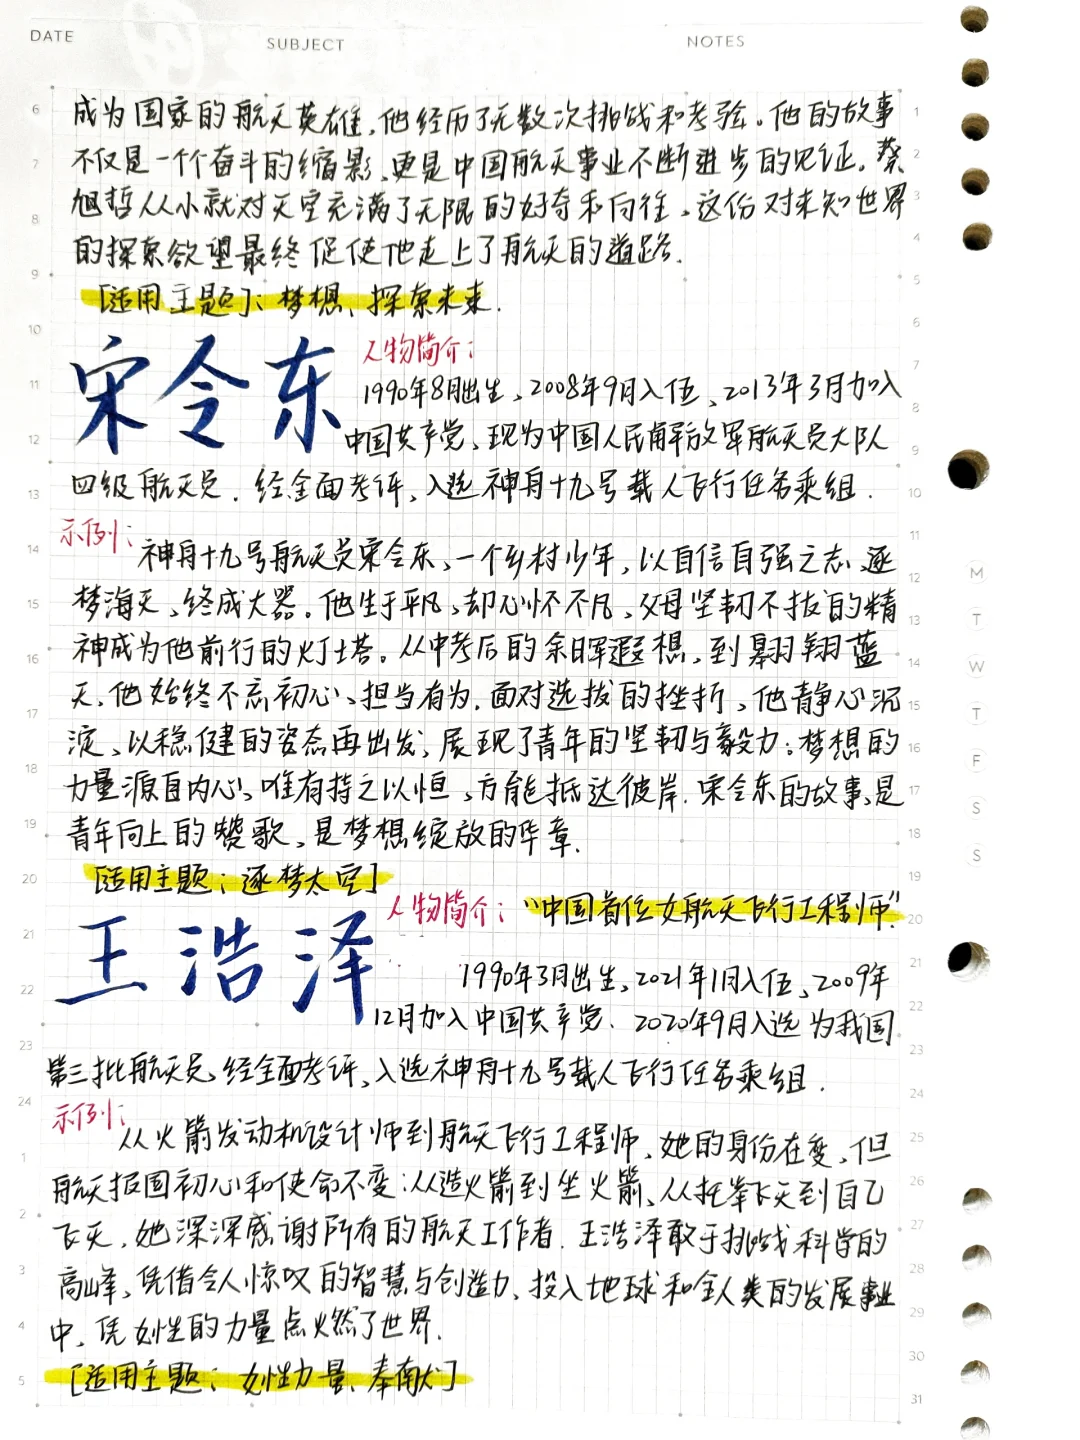 DATE
SUBJECT
NOTES
成为国家的航天英雄,他经历了无数次挑战和考验。他的故事
不仅是一个个奋斗的缩影,更是中国航天事业不断进步的见证。蔡
旭哲从小就对天空充满了无限的好奇和向往,这份对未知世界
的探索欲望最终促使他走上了航天的道路.
[适用主题]:梦想、探索未来.
宋令东
人物简介:
1990年8月出生,2008年9月入伍,2013年3月加入
中国共产党,现为中国人民解放军航天员大队
四级航天员.经全面考评,入选神舟十九号载人飞行任务乘组.
示例:
神舟十九号航天员宋令东,一个乡村少年,以自信自强之志,逐
梦海天,终成大器。他生于平凡,却心怀不凡,父母坚韧不拔的精
神成为他前行的灯塔。从中考后的余晖遐想,到翱翔蓝
天,他始终不忘初心、担当有为.面对选拔的挫折,他静心沉
淀,以稳健的姿态再出发,展现了青年的坚韧与毅力。梦想的
力量源自内心,唯有持之以恒,方能抵达彼岸.宋令东的故事,是
青年向上的赞歌,是梦想绽放的华章.
[适用主题:逐梦太空]
王浩泽
人物简介:“中国首位女航天飞行工程师”
1990年3月出生,2021年1月入伍,2009年
12月加入中国共产党.2020年9月入选为我国
第三批航天员,经全面考评,入选神舟十九号载人飞行任务乘组.
示例:
从火箭发动机设计师到航天飞行工程师,她的身份在变,但
航天报国初心和使命不变:从造火箭到坐火箭,从托举飞天到自己
飞天,她深深感谢所有的航天工作者.王浩泽敢于挑战科学的
高峰,凭借令人惊叹的智慧与创造力,投入地球和全人类的发展事业
中,凭女性的力量点燃了世界.
[适用主题:女性力量、奉献]
6
7
8
9
10
11
12
13
14
15
16
17
18
19
20
21
22
23
24
1
2
3
4
5
1
2
3
4
5
6
7
8
9
10
11
12
13
14
15
16
17
18
19
20
21
22
23
24
25
26
27
28
29
30
31
M
T
W
T
F
S
S